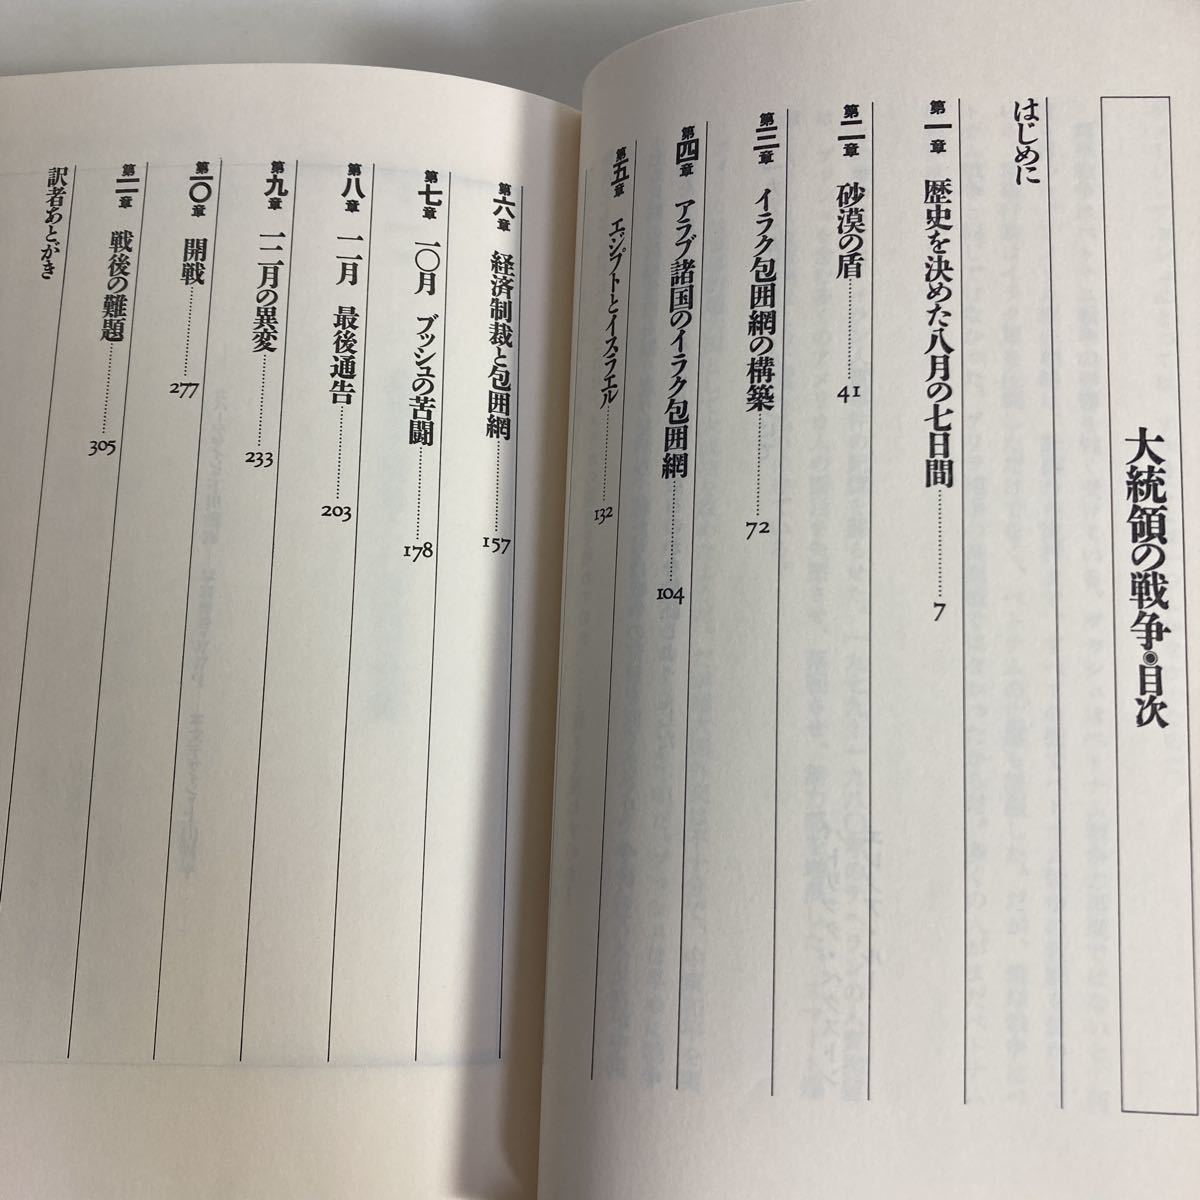 大統領の戦争◉目次
はじめに
第一章 歴史を決めた八月の七日間…………7
第二章 砂漠の盾…………41
第三章 イラク包囲網の構築…………72
第四章 アラブ諸国のイラク包囲網…………104
第五章 エジプトとイスラエル…………132
第六章 経済制裁と包囲網…………157
第七章 一〇月 ブッシュの苦闘…………178
第八章 一一月 最後通告…………203
第九章 一二月の異変…………233
第一〇章 開戦…………277
第一一章 戦後の難題…………305
訳者あとがき